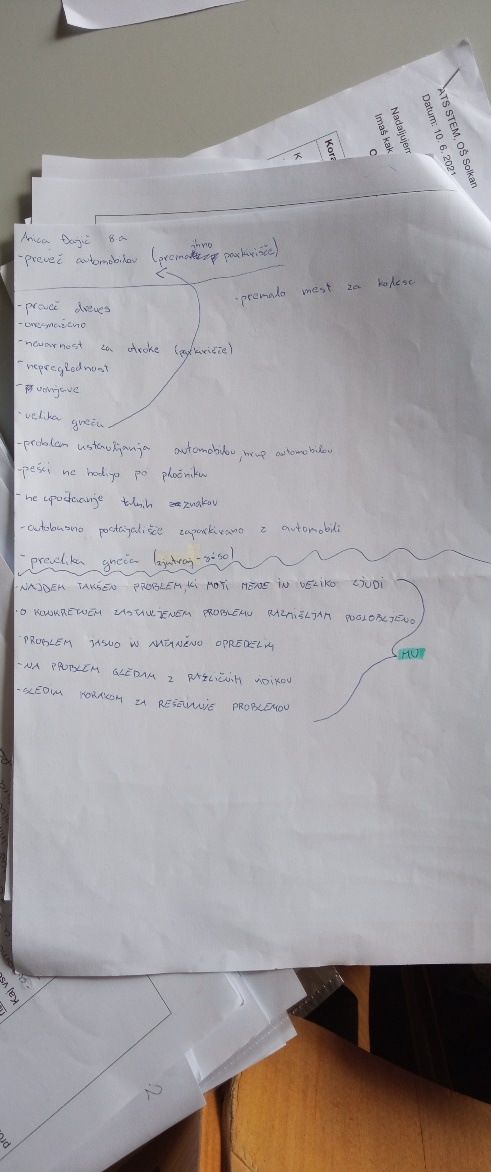 ATS STEM, OŠ Solkan
Datum: 10. 6. 2021
Nadaljujem
Imaš kak
Kora
K
Anica Đogić 8a
- preveč automobilov (premajhno parkirišče)
- premalo mest za kolesa
- preveč dreves
- onesnaženo
- nevarnost za otroke (parkirišče)
- nepreglednost
- vonjave
- velika gneča
- problem ustavljanja automobilov, hrup automobilov
- pešci ne hodijo po pločniku
- ne upoštevanje talnih znakov
- autobusno postajališče zaparkirano z automobili
- prevelika gneča (zjutraj -
- NAJDEM TAKŠEN PROBLEM, KI MOTI MENE IN VELIKO LJUDI
- O KONKRETNEM ZASTAVLJENEM PROBLEMU RAZMIŠLJAM POGLOBLJENO
- PROBLEM JASNO IN NATANČNO OPREDELIM
- NA PROBLEM GLEDAM Z RAZLIČNIH VIDIKOV
- SLEDIM KORAKOM ZA REŠEVANJE PROBLEMOV
Kaj vse